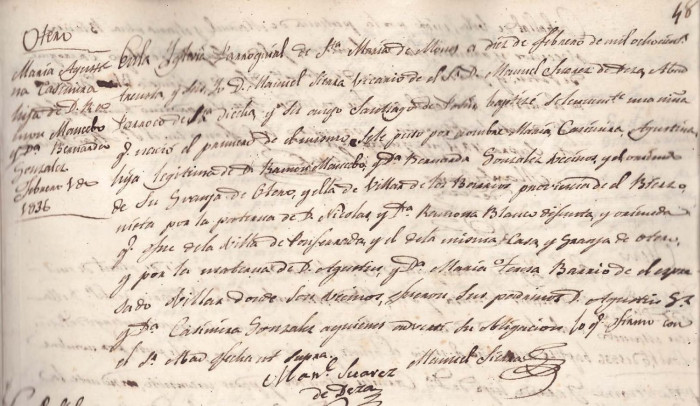 48
Otero
María Agusti
na Casimira
hija de D. Ra
mon Mancebo
y Dª Bernarda
Gonzalez
Febrero 1 de
1836
En la Iglesia Parroquial de Sta María de Mones a diez de febrero de mil ochocients
treinta y seis Yo D. Manuel Sierra Vicario de el Sr. D. Manuel Suarez de Deza, Abad
Parroco de Sta dicha y su anejo Santiago de bautizé solemnte una niña
q. nació el primero de el mismo púsele por nombre María Casimira, Agustina,
hija legitima de D. Ramon Mancebo, y Dª Bernarda Gonzalez vecinos, y el oriundo
de Su Granja de Otero, y ella de Villar de los Barrios provincia de el Bierzo
nieta por la paterna de D. Nicolas, y Dª Ramona Blanco difunta, y oriunda
q. fue de la Villa de Ponferrada, y el de la misma Casa, y Granja de Otero,
y por la materna de D. Agustin y Dª María Teresa Barrio de el expre
sado Villar donde son vecinos, fueron sus padrinos D. Agustin Gz
y Dª Casimira Gonzalez a quienes advertí su obligacion lo q. firmo con
el Sr. Abad fecha ut supra.
Manl. Suarez Manuel Sierra
de Deza